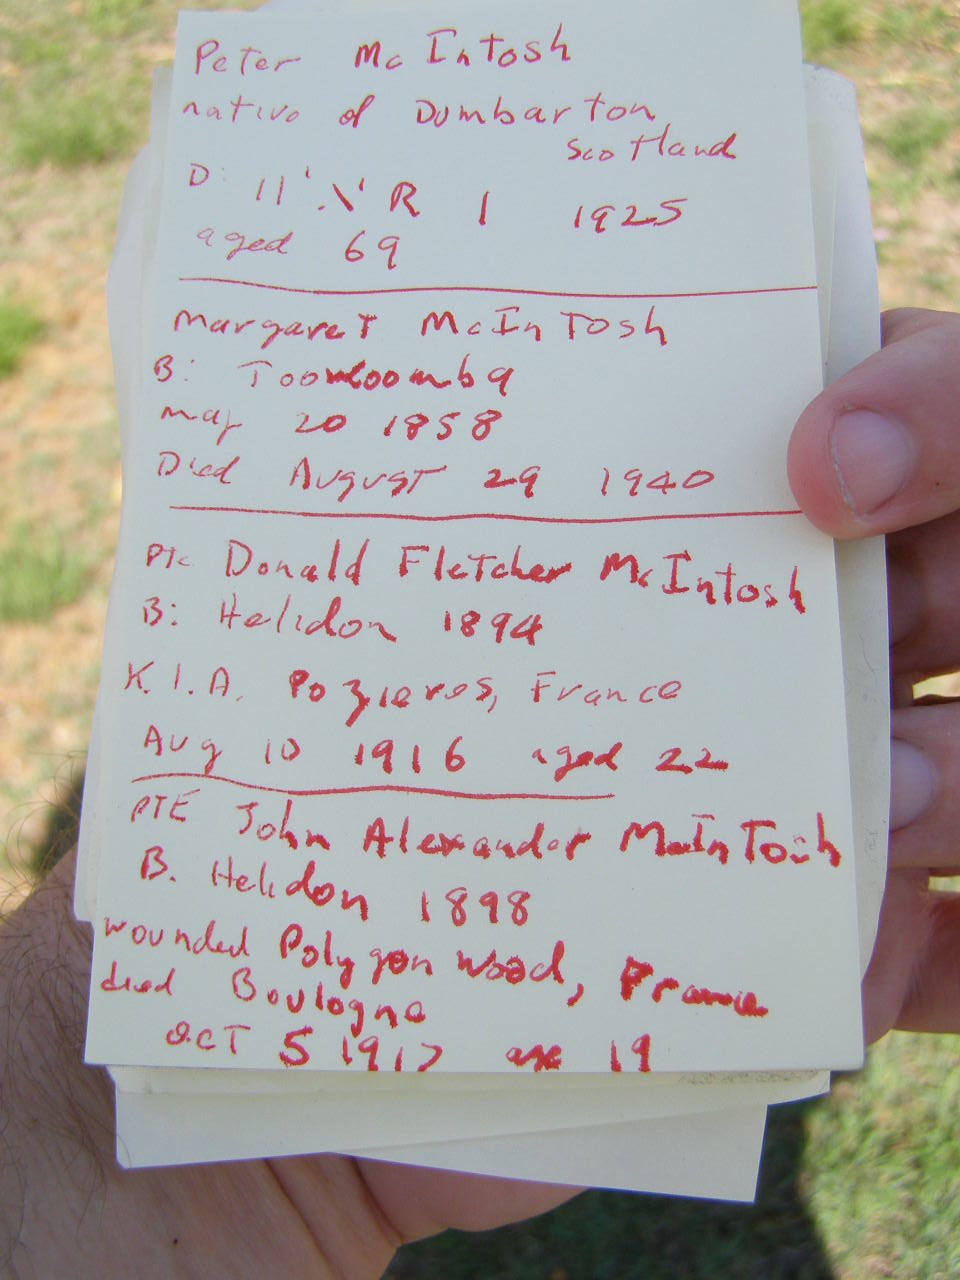 Peter McIntosh
native of Dumbarton
Scotland
D: 1 1925
aged 69
Margaret McIntosh
B: Toowoomba
may 20 1858
Died August 29 1940
Pte Donald Fletcher McIntosh
B: Helidon 1894
K.I.A. Pozieres, France
Aug 10 1916 aged 22
PTE John Alexander McIntosh
B. Helidon 1898
wounded Polygon Wood, France
died Boulogne
OCT 5 1917 age 19